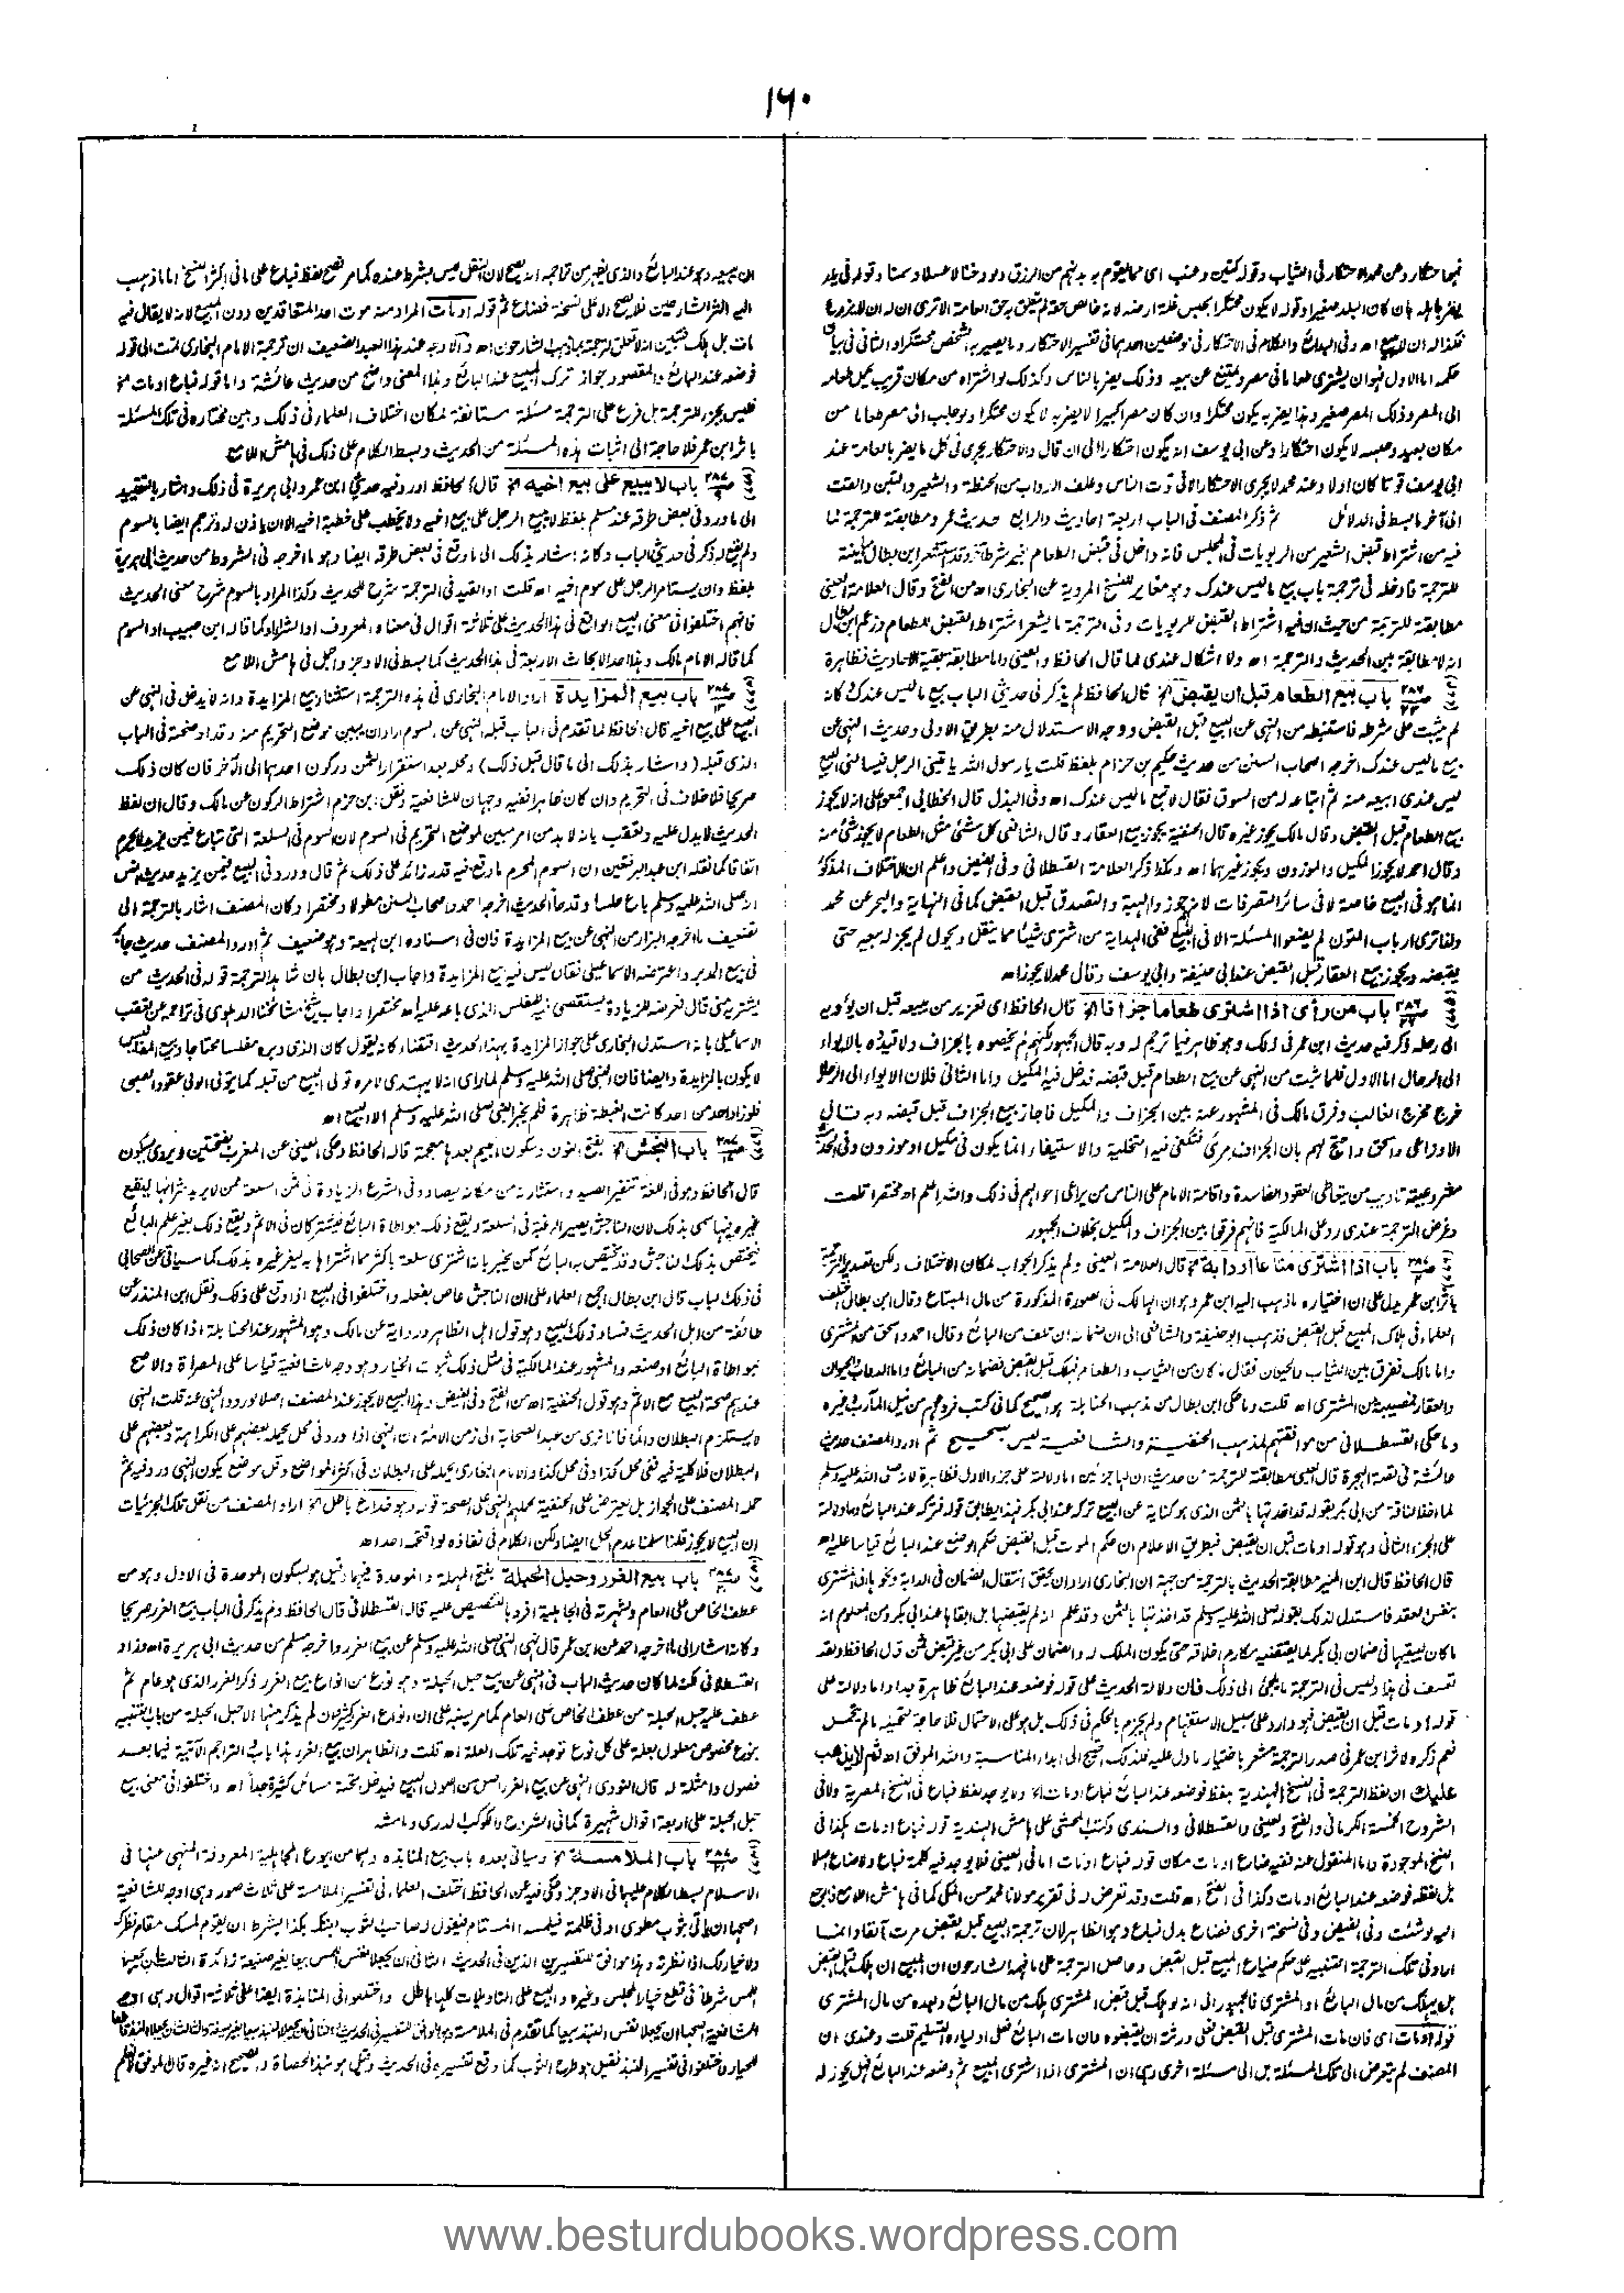 ١٦٠
فيها احتكار وعن محمد الاحتكار فى الثياب وقوله كتين وعنب اى مما يقوم به بدنهم من الرزق ولو دخنا لا عسلا وسمنا وقوله فى بلد
يضر باهله بان كان البلد صغيرا وقوله لا يكون محتكرا بحبس غلة ارضه لانه خالص حقه لم يتعلق به حق العامة الا ترى ان له ان لا يزرع
فكذا له ان لا يبيع اه وفى البدائع والكلام فى الاحتكار فى موضعين احدهما فى تفسير الاحتكار وما يصير به الشخص محتكرا والثانى فى بيان
حكمه اما الاول فهو ان يشترى طعاما فى مصر ويمتنع عن بيعه وذلك يضر بالناس وكذلك لو اشتراه من مكان قريب يحمل طعامه
الى المصر وذلك المصر صغير وهذا يضر به يكون محتكرا وان كان مصرا كبيرا لا يضر به لا يكون محتكرا ولو جلب الى مصر طعاما من
مكان بعيد وحبسه لا يكون احتكارا وعن ابى يوسف انه يكون احتكارا الى ان قال والاحتكار يجرى فى كل ما يضر بالعامة عند
ابى يوسف قوتا كان اولا وعند محمد لا يجرى الاحتكار الا فى قوت الناس وعلف الدواب من الحنطة والشعير والتبن والقت
الى آخر ما بسط فى الدلائل ثم ذكر المصنف فى الباب اربعة احاديث والرابع حديث عمر ومطابقته للترجمة لما
فيه من اشتراط قبض الشعير من الربويات فى المجلس فانه داخل فى قبض الطعام بغير شرط
للترجمة فادخله فى ترجمة باب بيع ما ليس عندك وهو مغاير للنسخ المروية عن البخارى اه من الفتح وقال العلامة العينى
مطابقته للترجمة من حيث ان فيه اشتراط القبض للربويات وفى الترجمة ما يشعر اشتراط القبض للطعام وزعم ابن بطال
انه لا مطابقة بين الحديث والترجمة اه ولا اشكال عندى لما قال الحافظ والعينى واما مطابقة بقية الاحاديث فظاهرة
باب بيع الطعام قبل ان يقبض الخ قال الحافظ لم يذكر فى حديثى الباب بيع ما ليس عندك وكانه
لم يثبت على شرطه فاستنبطه من النهى عن البيع قبل القبض ووجه الاستدلال منه بطريق الاولى وحديث النهى عن
بيع ما ليس عندك اخرجه اصحاب السنن من حديث حكيم بن حزام بلفظ قلت يا رسول الله ياتينى الرجل فيسألنى البيع
ليس عندى ابيعه منه ثم ابتاعه له من السوق فقال لا تبع ما ليس عندك اه وفى البذل قال الخطابى اجمعوا على انه لا يجوز
بيع الطعام قبل القبض وقال مالك يجوز غيره قال الحنفية يجوز بيع العقار وقال الشافعى كل شئ مثل الطعام لا يجوز شئ منه
وقال احمد لا يجوز المكيل والموزون ويجوز غيرهما اه وهكذا ذكر العلامة القسطلانى وفى الفيض واعلم ان الاختلاف المذكور
انما هو فى البيع خاصة لا فى سائر التصرفات لانه يجوز الهبة والتصدق قبل القبض كما فى النهاية والبحر عن محمد
ولذا ترى ارباب المتون لم يضعوا المسئلة الا فى البيع ففى الهداية من اشترى شيئا مما ينقل ويحول لم يجز له بيعه حتى
يقبضه ويجوز بيع العقار قبل القبض عند ابى حنيفة وابى يوسف وقال محمد لا يجوز اه
باب من رأى اذا اشترى طعاما جزافا الخ قال الحافظ اى تعزير من يبيعه قبل ان يؤويه
الى رحله ذكر فيه حديث ابن عمر فى ذلك وهو ظاهر فيما ترجم له وبه قال الجمهور لكنهم لم يخصوه بالجزاف ولا قيدوه بالايواء
الى الرحال اما الاول فلما ثبت من النهى عن بيع الطعام قبل قبضه فدخل فيه المكيل واما الثانى فلان الايواء الى الرحال
خرج مخرج الغالب وفرق مالك فى المشهور عنه بين الجزاف والمكيل فاجاز بيع الجزاف قبل قبضه وبه قال
الاوزاعى واسحق واحتج لهم بان الجزاف مرئى فتكفى فيه التخلية والاستيفاء انما يكون فى مكيل او موزون وفى الحديث
مشروعية تاديب من يتعاطى العقود الفاسدة واقامة الامام على الناس من يراعى احوالهم فى ذلك والله اعلم اه مختصرا قلت
وغرض الترجمة عندى رد على المالكية فانهم فرقوا بين الجزاف والمكيل بخلاف الجمهور
باب اذا اشترى متاعا او دابة الخ قال العلامة العينى ولم يذكر الجواب لمكان الاختلاف ولكن تصدير الترجمة
باثر ابن عمر يدل على ان اختياره ما ذهب اليه ابن عمر وهو ان الهالك فى الصورة المذكورة من مال المبتاع وقال ابن بطال اختلف
العلماء فى هلاك المبيع قبل القبض فذهب ابو حنيفة والشافعى الى ان ضمانه ان تلف من البائع وقال احمد واسحق من المشترى
واما مالك ففرق بين الثياب والحيوان فقال ما كان من الثياب والطعام فهلك قبل القبض فضمانه من البائع واما الدواب والحيوان
والعقار فمصيبته من المشترى اه قلت وما حكى ابن بطال من مذهب الحنابلة هو الصحيح كما فى كتب فروعهم من نيل المآرب وغيره
وما حكى القسطلانى من موافقتهم لمذهب الحنفية والشافعية ليس بصحيح ثم اورد المصنف حديث
عائشة فى قصة الهجرة قال العينى مطابقته للترجمة من حديث ان لها جزئين اما دلالته على جزء الاول فظاهرة لانه صلى الله عليه وسلم
لما اخذ الناقة من ابى بكر بقوله قد اخذتها بالثمن الذى هو كناية عن البيع تركه عند ابى بكر فهذا يطابق قوله فتركه عند البائع واما دلالته
على الجزء الثانى وهو قوله او مات قبل ان يقبض فبطريق الاعلام ان حكم الموت قبل القبض حكم الوضع عند البائع قياسا عليه اه
قال الحافظ قال ابن المنير مطابقة الحديث بالترجمة من جهة ان البخارى اراد ان يحقق انتقال الضمان فى الدابة ونحوها الى المشترى
بنفس العقد فاستدل لذلك بقوله صلى الله عليه وسلم قد اخذتها بالثمن وقد علم انه لم يقبضها بل ابقاها عند ابى بكر ومن المعلوم انه
ما كان ليبقيها فى ضمان ابى بكر لما يقتضيه مكارم اخلاقه حتى يكون الملك له والضمان على ابى بكر من غير قبض ثمن قال الحافظ ولقد
تعسف فى هذا وليس فى الترجمة ما يلجئ الى ذلك فان دلالة الحديث على قوله فوضعه عند البائع ظاهرة جدا واما دلالته على
قوله او مات قبل ان يقبض فهو وارد على سبيل الاستفهام ولم يجزم بالحكم فى ذلك بل هو على الاحتمال فلا حاجة لتحميله ما لم يتحمل
نعم ذكره لاثر ابن عمر فى صدر الترجمة مشعر باختيار ما دل عليه فلذلك احتيج الى ابداء المناسبة والله الموفق اه ثم لا يذهب
عليك ان لفظ الترجمة فى النسخ الهندية بلفظ فوضعه عند البائع فباع او مات اه ولا يوجد لفظ فباع فى النسخ المصرية ولا فى
الشروح الخمسة الكرمانى والفتح والعينى والقسطلانى والسندى وكتب المحشى على هامش الهندية قوله فباع او مات هكذا فى
النسخ الموجودة واما المنقول عنه ففيه ضاع او مات مكان قوله فباع او مات اما فى العينى فلا يوجد فيه كلمة فباع ولا ضاع اصلا
بل لفظه فوضعه عند البائع او مات وكذا فى الفتح اه قلت وقد تعرض له فى تقرير مولانا محمد حسن المكى كما فى هامش اللامع فارجع
اليه لو شئت وفى الفيض وفى نسخة اخرى فضاع بدل فباع وهو الظاهر لان ترجمة البيع قبل القبض مرت آنفا وانما
اراد فى تلك الترجمة التنبيه على حكم ضياع المبيع قبل القبض وحاصل الترجمة على ما فهمه الشارحون ان المبيع ان هلك قبل القبض
هل يهلك من مال البائع او المشترى فالجمهور الى انه لو هلك قبل قبض المشترى هلك من مال البائع وبعده من مال المشترى
قوله او مات اى فان مات المشترى قبل القبض فعلى ورثته ان يقبضوه وان مات البائع فعلى اوليائه التسليم قلت وعندى ان
المصنف لم يتعرض الى تلك المسئلة بل الى مسئلة اخرى وهى ان المشترى اذا اشترى المبيع ثم وضعه عند البائع فهل يجوز له
ان يبيعه وهو عند البائع والذى يظهر من تراجمه انه يصح لان النقل ليس بشرط عنده كما مر فصح لفظ فباع على ما فى اكثر النسخ اما ما ذهب
اليه الشارحون فلا يصح الا على نسخة فضاع ثم قوله او مات المراد منه موت احد المتعاقدين دون المبيع لانه لا يقال فيه
مات بل هلك فتبين انه لا تعلق لترجمة بما ذهب الشارحون اه والاوجه عند هذا العبد الضعيف ان ترجمة الامام البخارى تمت الى قوله
فوضعه عند البائع والمقصود جواز ترك المبيع عند البائع وهذا المعنى واضح من حديث عائشة واما قوله فباع او مات الخ
فليس بجزء للترجمة بل فرع على الترجمة مسئلة مستانفة لمكان اختلاف العلماء فى ذلك وبين مختاره فى تلك المسئلة
باثر ابن عمر فلا حاجة الى اثبات هذه المسئلة من الحديث وبسط الكلام على ذلك فى هامش اللامع
باب لا يبيع على بيع اخيه الخ قال الحافظ اورد فيه حديثى ابن عمر وابى هريرة فى ذلك واشار بالتقييد
الى ما ورد فى بعض طرقه عند مسلم بلفظ لا يبيع الرجل على بيع اخيه ولا يخطب على خطبة اخيه الا ان ياذن له وترجم ايضا بالسوم
ولم يقع له ذكر فى حديثى الباب وكانه اشار بذلك الى ما وقع فى بعض طرقه ايضا وهو ما اخرجه فى الشروط من حديث ابى هريرة
بلفظ وان يستام الرجل على سوم اخيه اه قلت او القيد فى الترجمة شرح للحديث وكذا المراد بالسوم شرح معنى الحديث
فانهم اختلفوا فى معنى البيع الواقع فى هذا الحديث على ثلاثة اقوال فى معناه المعروف او الشراء كما قاله ابن حبيب او السوم
كما قاله الامام مالك وهذا احد الابحاث الاربعة فى هذا الحديث كما بسط فى الاوجز واجمل فى هامش اللامع
باب بيع المزايدة اراد الامام البخارى فى هذه الترجمة استثناء بيع المزايدة وانه لا يدخل فى النهى عن
البيع على بيع اخيه قال الحافظ لما تقدم فى الباب قبله النهى عن السوم اراد ان يبين موضع التحريم منه وقد اوضحته فى الباب
الذى قبله (واشار بذلك الى ما قال قبل ذلك) ومحله بعد استقرار الثمن وركون احدهما الى الآخر فان كان ذلك
صريحا فلا خلاف فى التحريم وان كان ظاهرا ففيه وجهان للشافعية ونقل ابن حزم اشتراط الركون عن مالك وقال ان لفظ
الحديث لا يدل عليه وتعقب بانه لا بد من امر مبين لموضع التحريم فى السوم لان السوم فى السلعة التى تباع فيمن يزيد لا يحرم
اتفاقا كما نقله ابن عبد البر فتعين ان السوم المحرم ما وقع فيه قدر زائد على ذلك ثم قال وورد فى البيع فيمن يزيد حديث انس
انه صلى الله عليه وسلم باع حلسا وقدحا الحديث اخرجه احمد واصحاب السنن مطولا ومختصرا وكان المصنف اشار بالترجمة الى
تضعيف ما اخرجه البزار من النهى عن بيع المزايدة فان فى اسناده ابن لهيعة وهو ضعيف ثم اورد المصنف حديث جابر
فى بيع المدبر واعترضه الاسماعيلى فقال ليس فيه بيع المزايدة واجاب ابن بطال بان شاهد الترجمة قوله فى الحديث من
يشتريه منى قال فعرضه للزيادة ليستقصى فيه للمفلس الذى باعه عليه اه مختصرا واجاب شيخ مشائخنا الدهلوى فى تراجمه عن تعقب
الاسماعيلى بانه استدل البخارى على جواز المزايدة بهذا الحديث اقتضاء كانه يقول كان الذى دبره مفلسا محتاجا وبيع المفاليس
لا يكون الا بالمزايدة وايضا فان النبى صلى الله عليه وسلم لما راى انه لا يهتدى لامره تولى البيع من قبله كما يتولى الولى عقود الصبى
فلو زاد احد من احد كانت الغبطة ظاهرة فلم يخير النبى صلى الله عليه وسلم الا البيع اه
باب النجش الخ بفتح النون وسكون الجيم بعدها معجمة قاله الحافظ وحكى العينى عن المغرب بفتحتين ويروى بسكون
قال الحافظ وهو فى اللغة تنفير الصيد واستثارته من مكانه ليصاد وفى الشرع الزيادة فى ثمن السلعة ممن لا يريد شرائها ليقع
غيره فيها سمى بذلك لان الناجش يثير الرغبة فى السلعة ويقع ذلك بمواطاة البائع فيشتركان فى الاثم ويقع ذلك بغير علم البائع
فيختص بذلك الناجش وقد يختص به البائع كمن يخبر بانه اشترى سلعة باكثر مما اشتراها به ليغر غيره بذلك كما سياتى عن الصحابى
فى ذلك الباب قال ابن بطال اجمع العلماء على ان الناجش عاص بفعله واختلفوا فى البيع اذا وقع على ذلك ونقل ابن المنذر عن
طائفة من اهل الحديث فساد ذلك البيع وهو قول اهل الظاهر ورواية عن مالك وهو المشهور عند الحنابلة اذا كان ذلك
بمواطاة البائع او صنعه والمشهور عند المالكية فى مثل ذلك ثبوت الخيار وهو وجه للشافعية قياسا على المصراة والاصح
عندهم صحة البيع مع الاثم وهو قول الحنفية اه من الفتح وفى الفيض وهذا البيع لا يجوز عند المصنف اصلا لورود النهى عنه قلت النهى
لا يستلزم البطلان دائما فانا نرى من عهد الصحابة الى زمن الائمة ان النهى اذا ورد فى محل يحمله بعضهم على الكراهة وبعضهم على
البطلان فلا كلية فيه ففى محل كذا وفى محل كذا والامام البخارى يحمله على البطلان فى اكثر المواضع وقل موضع يكون النهى ورد فيه ثم
حمله المصنف على الجواز بل يعترض على الحنفية بحملهم النهى على الصحة قوله وهو خداع باطل الخ اراد المصنف من نقل تلك الجزئيات
ان البيع لا يجوز قلنا سلمنا عدم الحل ايضا ولكن الكلام فى نفاذه لو اقتحمه احد اه
باب بيع الغرر وحبل الحبلة بفتح المهملة والموحدة فيهما وقيل هو بسكون الموحدة فى الاول وهو من
عطف الخاص على العام ولشهرته فى الجاهلية افرد بالتنصيص عليه قاله القسطلانى قال الحافظ ولم يذكر فى الباب بيع الغرر صريحا
وكانه اشار الى ما اخرجه احمد عن ابن عمر قال نهى النبى صلى الله عليه وسلم عن بيع الغرر واخرجه مسلم من حديث ابى هريرة اه وزاد
القسطلانى لكنه لما كان حديث الباب فى النهى عن بيع حبل الحبلة وهو نوع من انواع بيع الغرر ذكر الغرر الذى هو عام ثم
عطف عليه حبل الحبلة من عطف الخاص على العام كما مر لينبه على ان انواع الغرر كثيرة وان لم يذكر منها الا حبل الحبلة من باب التنبيه
بنوع مخصوص معلول بعلة على كل نوع توجد فيه تلك العلة اه قلت والظاهر ان بيع الغرر هذا باب التراجم الآتية فيما بعد
فصول وامثلة له قال النووى النهى عن بيع الغرر اصل من اصول البيع فيدخل تحته مسائل كثيرة جدا اه واختلفوا فى معنى بيع
حبل الحبلة على اربعة اقوال شهيرة كما فى الشروح والكوكب الدرى وهامشه
باب الملامسة الخ وسياتى بعده باب بيع المنابذة وهما من بيوع الجاهلية المعروفة المنهى عنها فى
الاسلام بسط الكلام عليهما فى الاوجز وحكى فيه عن الحافظ اختلف العلماء فى تفسير الملامسة على ثلاث صور وهى اوجه للشافعية
اصحها ان ياتى بثوب مطوى او فى ظلمة فيلمسه المستام فيقول له صاحب الثوب بعتكه بكذا بشرط ان يقوم لمسك مقام نظرك
ولا خيار لك اذا نظرته وهذا موافق للتفسيرين الذين فى الحديث الثانى ان يجعلا نفس اللمس بيعا بغير صيغة زائدة الثالث ان يجعلا
اللمس شرطا فى قطع خيار المجلس وغيره والبيع على التاويلات كلها باطل واختلفوا فى المنابذة ايضا على ثلاثة اقوال وهى اوجه
للشافعية اصحها ان يجعلا نفس النبذ بيعا كما تقدم فى الملامسة وهو الموافق للتفسير فى الحديث والثانى ان يجعلا النبذ بيعا بغير صيغة والثالث ان يجعلا النبذ قاطعا
للخيار واختلفوا فى تفسير النبذ فقيل هو طرح الثوب كما وقع تفسيره فى الحديث وقيل هو نبذ الحصاة والصحيح انه غيره قال الموفق لا نعلم
www.besturdubooks.wordpress.com